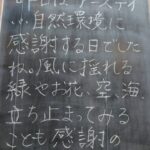 昨日は、アースデイ
小自然環境に
感謝する日でした
ね。風に揺れる
緑やお花、空、海、
立ち止まってみる
ことも感謝の